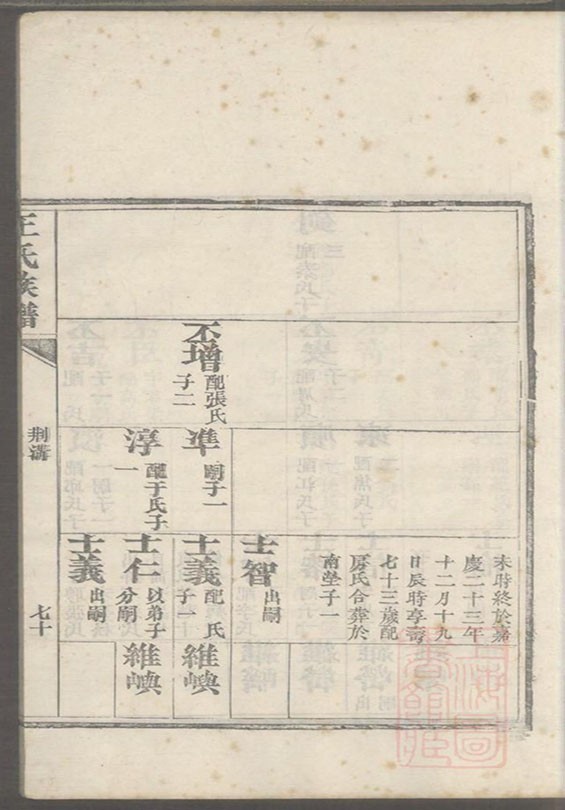 未時終於嘉
慶二十三年
十二月十九
日辰時享壽
七十三歲配
房氏合葬於
南塋子一
士智 出嗣
丕增 配張氏
子二
準 嗣子一
士義 配 氏
子一
維嶼
淳 配于氏子
一
士仁 以弟子
分嗣
維嶼
士義 出嗣
王氏族譜
荆溝
七十